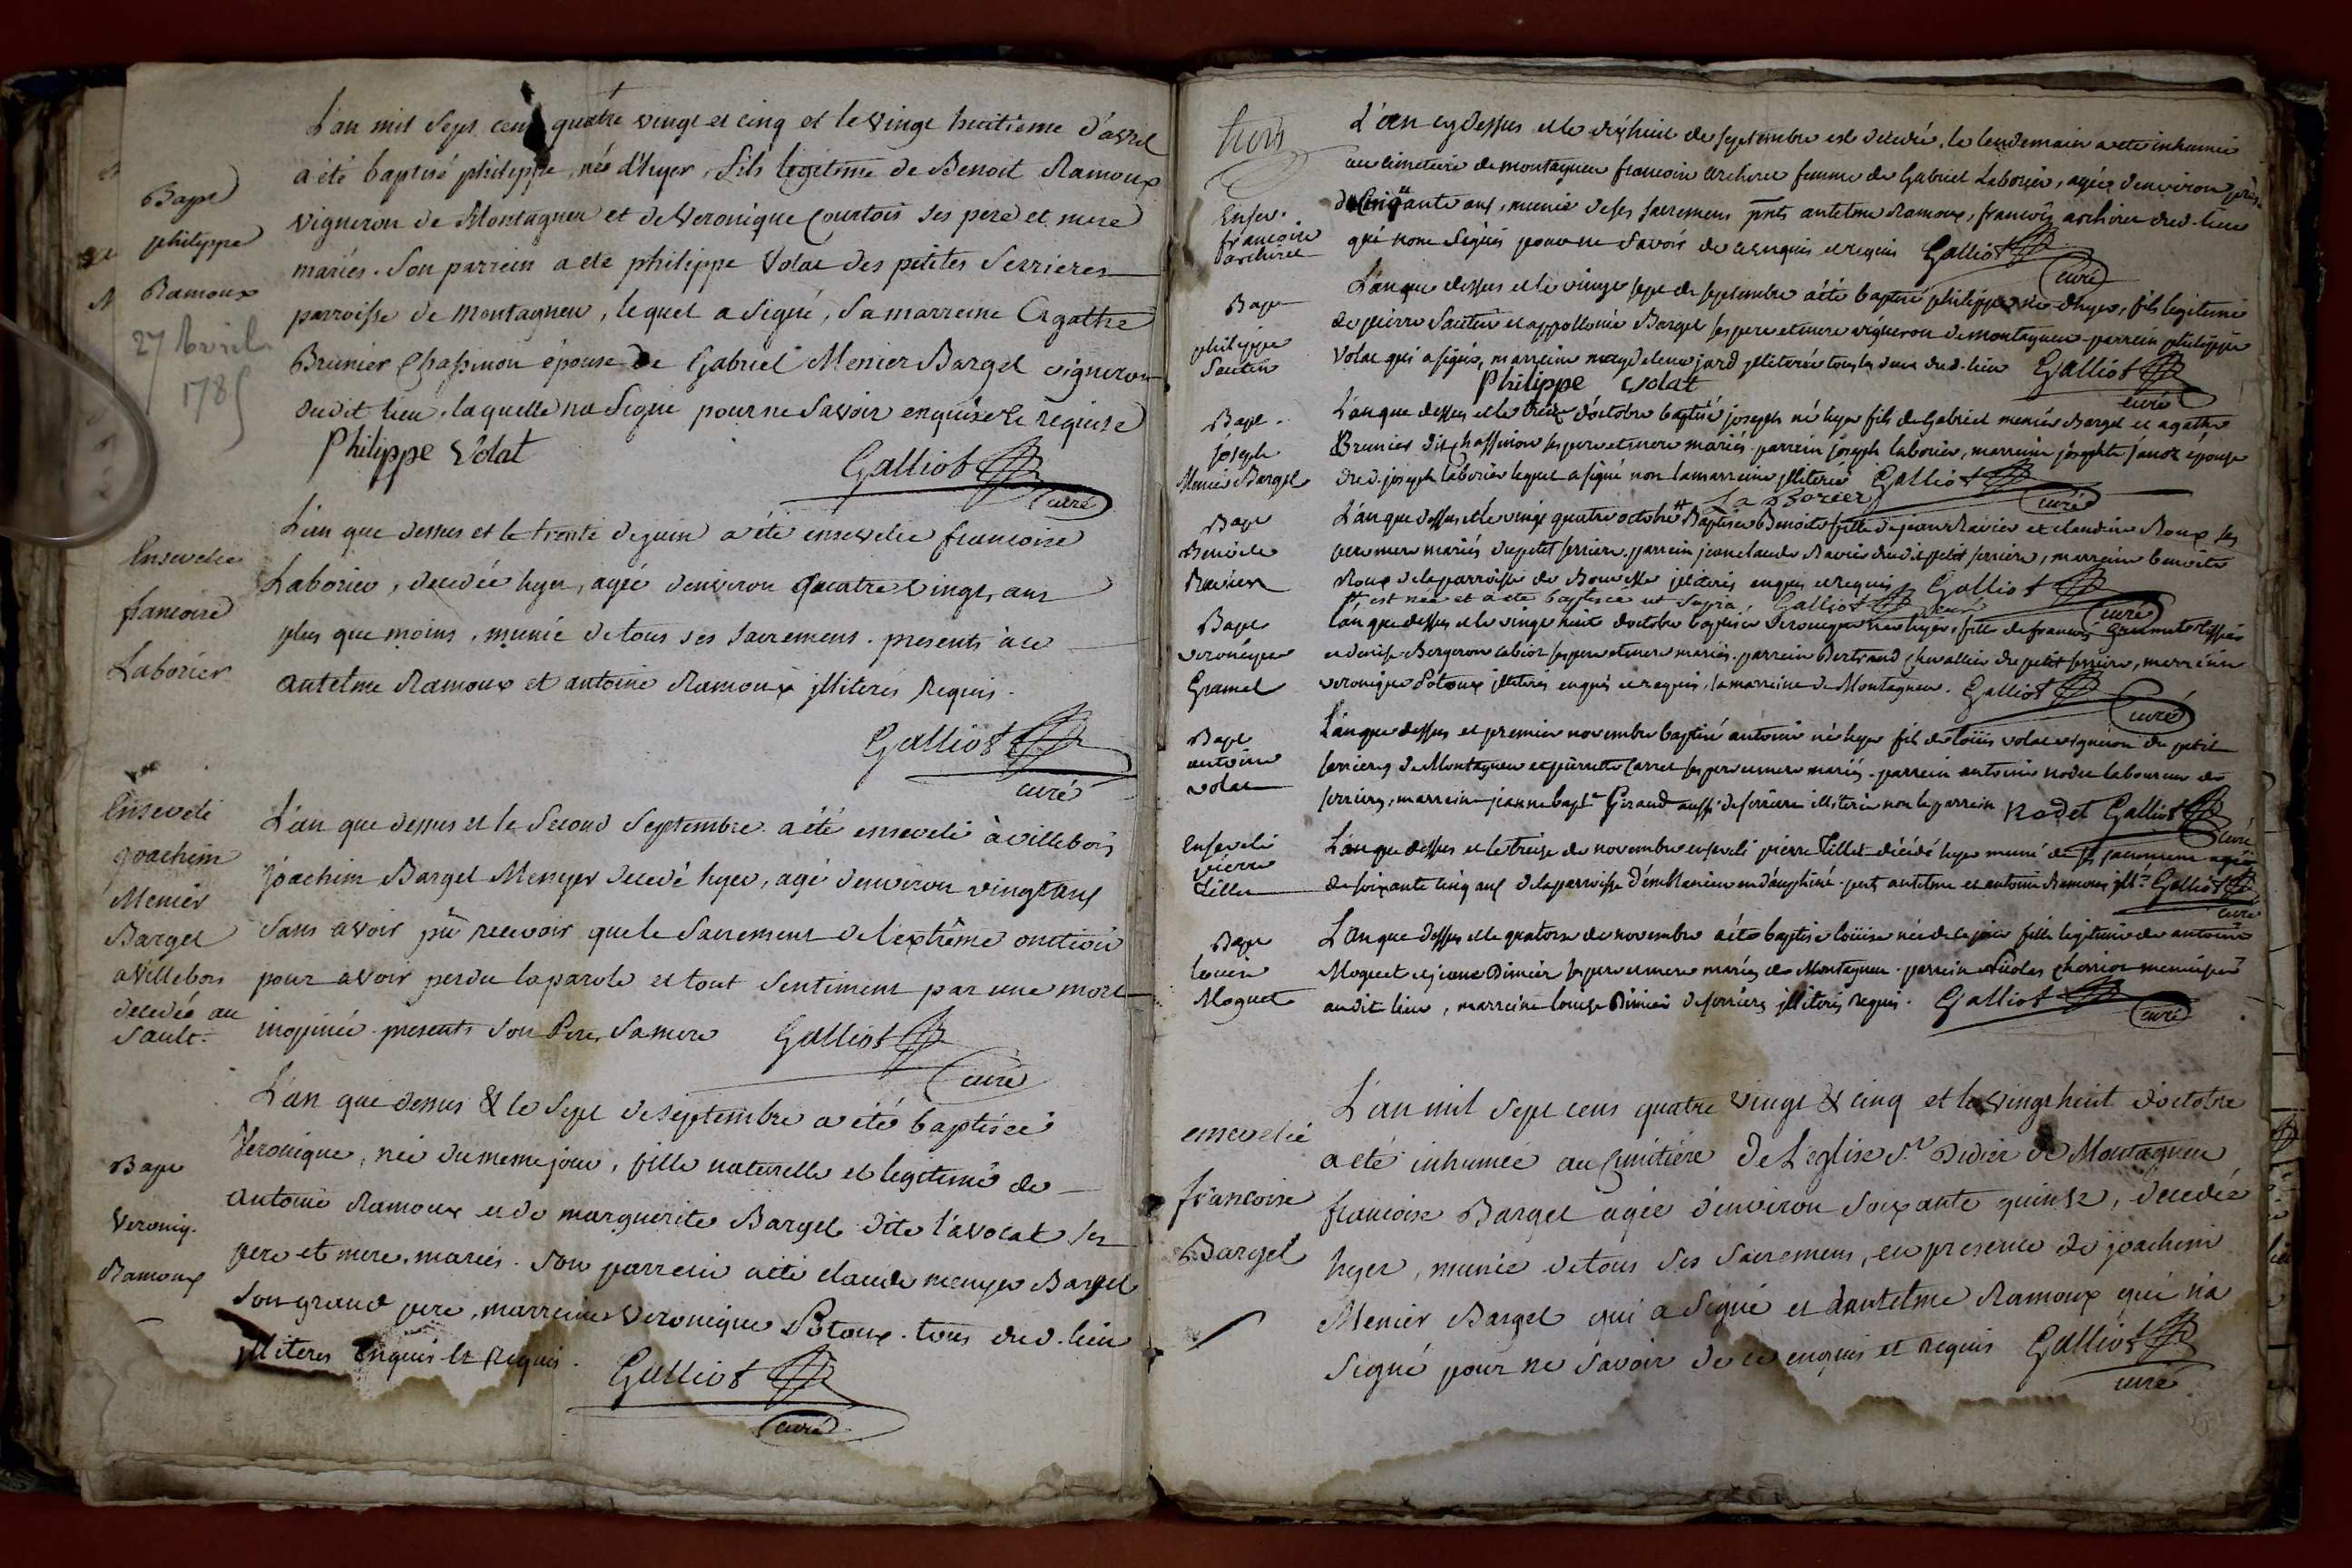 Bapt
philippe
Ramoux
27 Avril
1785
L'an mil sept cent quatre vingt et cinq et le vingt huitieme d'avril
a été baptisé philippe, né d'hyer, fils legitime de Benoit Ramoux
vigneron de Montagneu et de Veronique Courtois ses pere et mere
mariés. Son parrein a été philippe Volat des petites Serrieres
parroisse de montagneu, lequel a signé, sa marreine Agathe
Brunier Chassinon épouse de Gabriel Menier Bargel vigneron
dudit lieu, laquelle na signé pour ne savoir enquise et requise
Philippe Volat
Galliot curé
Ensevelie
francoise
Laborier
L'an que dessus et le trente de juin a été ensevelie francoise
Laborier, decedée hyer, agée d'environ quatre vingt, ans
plus que moins, munie de tous ses sacremens. presents à ce
antelme Ramoux et antoine Ramoux jlliterés requis.
Galliot
curé
Enseveli
joachim
Menier
Bargel
a villebois
decedée au
Sault.
L'an que dessus et le second septembre a été enseveli à villebois
joachim Bargel Menyer decedé hyer, agé d'environ vingt ans
sans avoir pû recevoir que le sacrement de l'extrême onction
pour avoir perdu la parole et tout sentiment par une mort
inopinée. presents son Pere, sa mere Galliot
curé
Bapt
Veroniq.
Ramoux
L'an que dessus & le sept de septembre a été baptisée
Veronique, née du meme jour, fille naturelle et legitime de
antoine Ramoux et de marguerite Bargel dite l'avocat ses
pere et mere, mariés. Son parrein a été claude menyer Bargel
son grand pere, marreine Veronique Potoux. tous dud. lieu
jlliteres enquis et requis.
Galliot
curé
Ensev.
francoise
archirel
L'an cy dessus et le dix huit de septembre est decedée, le lendemain a été inhumée
au cimetiere de montagneu francoise archirel femme de Gabriel Laborier, agée d'environ
de cinquante ans, munie de ses sacremens pnts antelme Ramoux, francois archirel dud. lieu
qui n'ont signés pour ne savoir de ce enquis et requis Galliot
curé
Bapt
philippe
Sautin
L'an que dessus et le vingt sept de septembre a été baptisé philippe né d'hyer, fils legitime
de pierre Sautin et appollonie Bargel ses pere et mere vigneron de montagneu parrein philippe
Volat qui a signé, marreine magdeleine jard jlliterée tous les deux dud. lieu Galliot
Philippe volat
curé
Bapt.
joseph
Menier Bargel
L'an que dessus et le treize d'octobre baptisé joseph né hyer fils de Gabriel menier Bargel et agathe
Brunier dit chassinon ses pere et mere mariés parrein joseph laborier, marreine josephte janot épouse
dud. joseph laborier lequel a signé non la marreine jlliterée Galliot
La Borier
curé
Bapt
Benoite
Ravier
L'an que dessus et le vingt quatre octobre # Baptisée Benoite fille de jean Ravier et claudine Roux ses
pere mere mariés du petit serriere. parrein jean claude Ravier dudit petit serriere, marreine benoite
Roux de la parroisse de Bouvesse jlliterés enquis et requis Galliot
# est née et a été baptisée ut supra. Galliot curé
curé
Bapt
veronique
Gramel
L'an que dessus et le vingt huit d'octobre baptisée Veronique née hyer, fille de francois
et denise Bergeron cabiot ses pere et mere mariés. parrein Bertrand chevallier du petit serriere, marreine
veronique Potoux jlliterés enquis et requis, la marreine de Montagneu. Galliot
curé
Bapt
antoine
volat
L'an que dessus et premier novembre baptisé antoine né hyer fils de loüis volat vigneron du petit
serrieres de Montagneu et pierrette Carret ses pere et mere mariés. parrein antoine nodet laboureur de
serrieres, marreine jeanne bapt.e Giraud aussi de serriere jlliterée non le parrein Nodet Galliot
curé
Enseveli
pierre
Tillet
L'an que dessus et le treize de novembre enseveli pierre Tillet décédé hyer muni de ses sacremens agé
de soixante cinq ans de la parroisse d'emblanieu en dauphiné. pnts antelme et antoine Ramoux Galliot
curé
Bapt
louise
Moguet
L'an que dessus et le quatorze de novembre a été baptisée loüise née de ce jour fille legitime de antoine
Moguet et jeanne Dimier ses pere et mere mariés de Montagneu. parrein Nicolas
audit lieu, marreine louise Dimier de serrieres jlliterés requis. Galliot
curé
ensevelie
francoise
Bargel
L'an mil sept cens quatre vingt & cinq et le vingt huit d'octobre
a été inhumée au cimitiere de L'eglise St. Didier de Montagneu
francoise Bargel agée d'environ soixante quinze, decedée
hyer, munie de tous ses sacremens, en presence de joachim
Menier Bargel qui a signé et d'antelme Ramoux qui n'a
signé pour ne savoir de ce enquis et requis Galliot
curé